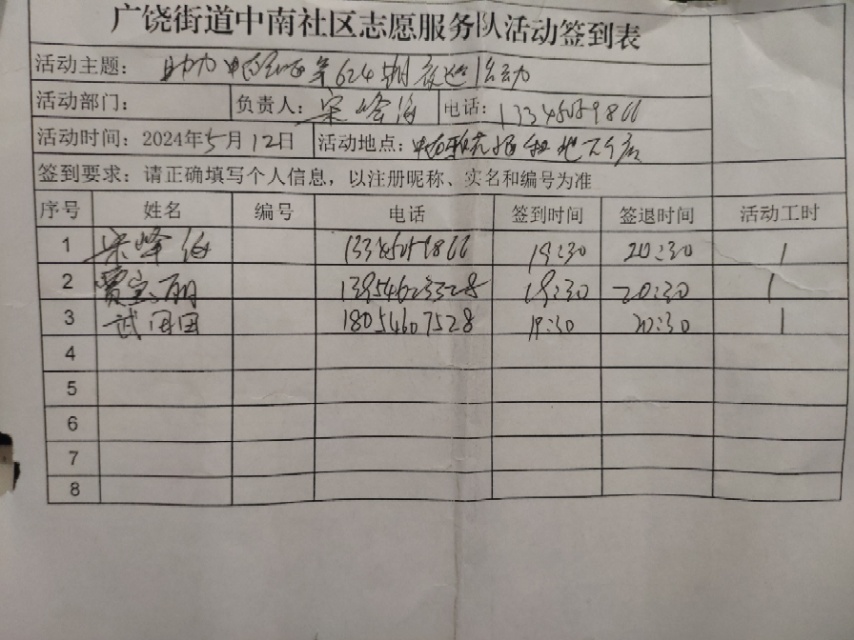 广饶街道中南社区志愿服务队活动签到表
活动主题：助力 第624期夜巡活动
活动部门： 负责人：宋峰海 电话：13345059866
活动时间：2024年5月12日 活动地点：中南
签到要求：请正确填写个人信息，以注册昵称、实名和编号为准
序号 姓名 编号 电话 签到时间 签退时间 活动工时
1 宋峰海 13345059866 19:30 20:30 1
2 贾宝丽 13954623328 19:30 20:30 1
3 武团团 18054607528 19:30 20:30 1
4
5
6
7
8